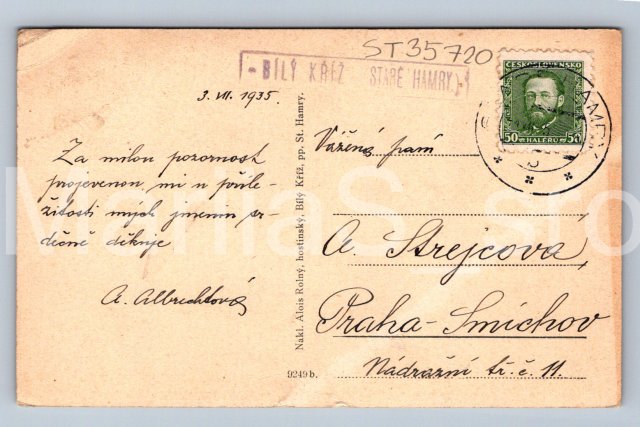 ST35720
BÍLÝ KŘÍŽ STARÉ HAMRY
ČESKOSLOVENSKO
50 HALÉŘŮ 50
3. VII. 1935.
Za milou pozornost
projevenou mi u příle-
žitosti mých jmenin sr-
děčně děkuje
A. Albrechtová
Nakl. Alois Rolný, hostinský, Bílý Kříž, pp. St. Hamry.
9249 b.
Vážená paní
A. Strejcova
Praha-Smíchov
Nádražní tř. č. 11.